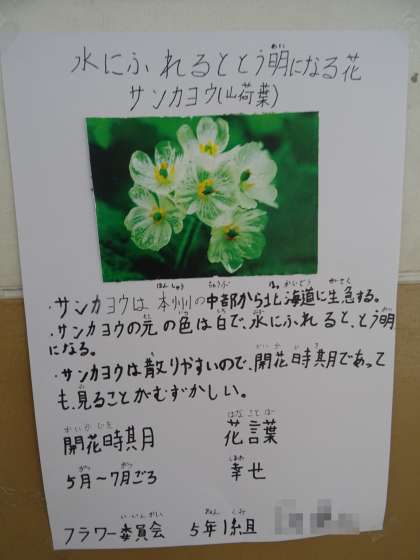 水にふれるととう明になる花
サンカヨウ(山荷葉)
・サンカヨウは本州の中部から北海道に生息する。
・サンカヨウの元の色は白で、水にふれると、とう明
になる。
・サンカヨウは散りやすいので、開花時期であって
も、見ることがむずかしい。
開花時期
花言葉
5月〜7月ごろ
幸せ
フラワー委員会 5年1組